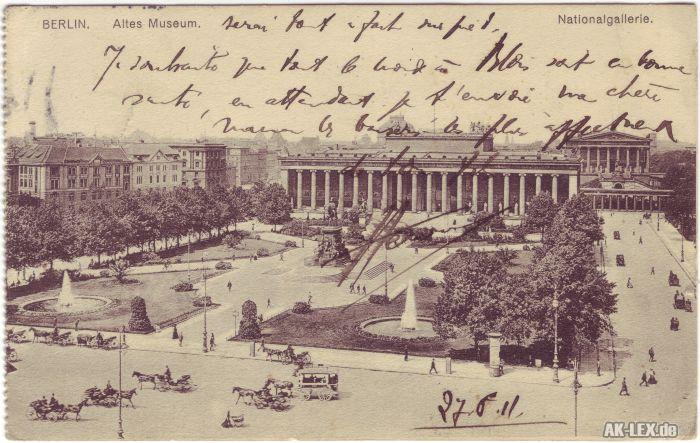 BERLIN. Altes Museum. Nationalgallerie.
serai tout à fait
Je souhaite que tout le monde à Blois soit en bonne
santé, en attendant je t'envoie ma chère
maman les baisers les plus affectueux
27.6.11
AK-LEX.de